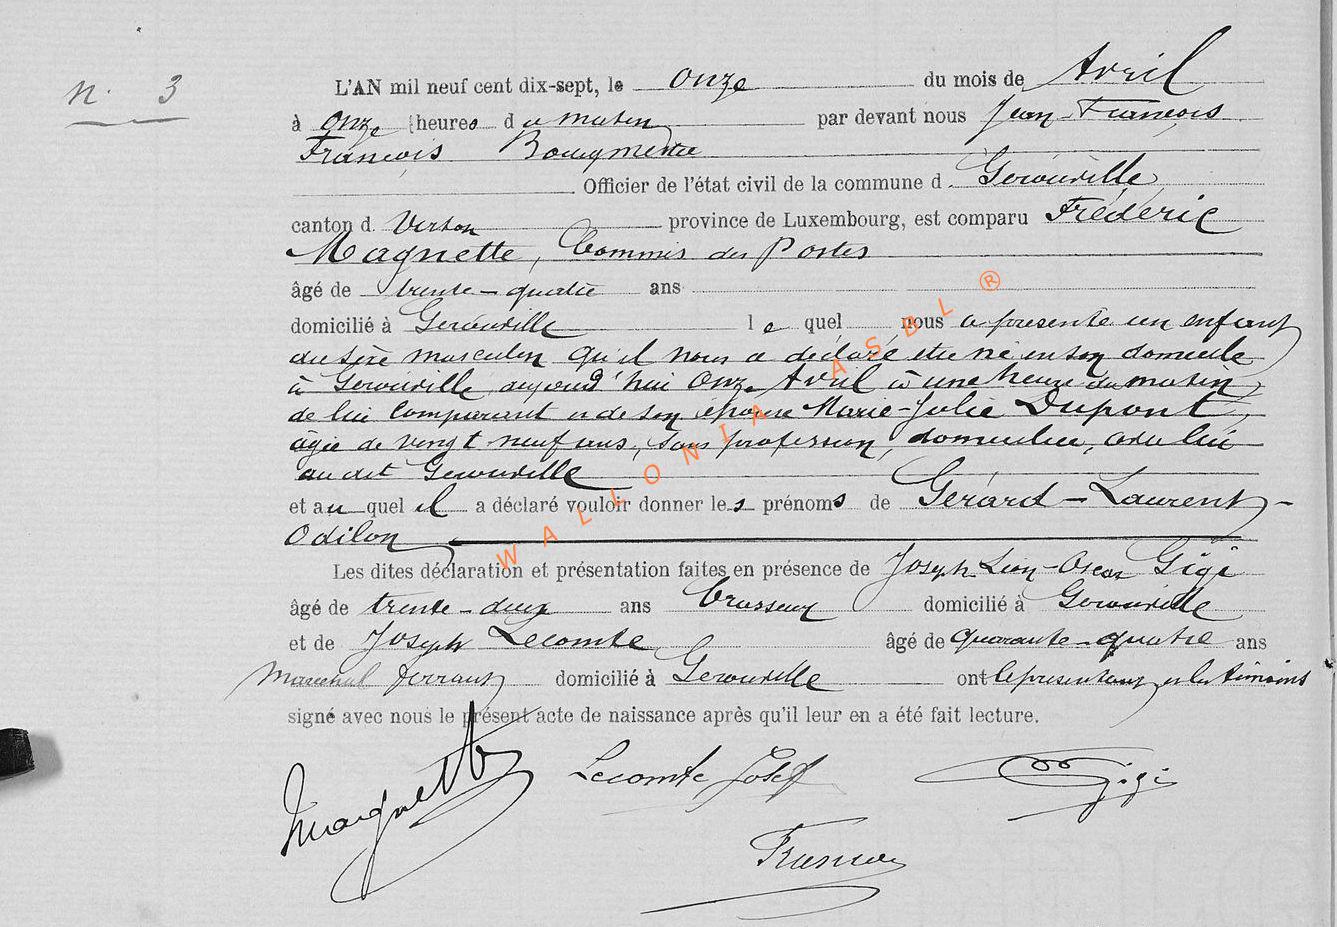 n. 3
L'AN mil neuf cent dix-sept, le onze du mois de Avril
à onze heures du matin par devant nous Jean-François
François
Officier de l'état civil de la commune d Gérouville
canton d. Virton province de Luxembourg, est comparu Frédéric
Magnette, Commis des Postes
âgé de trente-quatre ans
domicilié à Gérouville lequel nous a présenté un enfant
du sèxe masculin qu'il nous a déclaré être né en son domicile
à Gérouville aujourd'hui onze Avril à une heure du matin,
de lui comparant et de son épouse Marie-Julie Dupont,
agée de vingt neuf ans, sans profession, domiciliée, avec lui
au dit Gérouville
et au quel il a déclaré vouloir donner les prénoms de Gérard-Laurent-
Odilon
Les dites déclaration et présentation faites en présence de Joseph Léon-Oscar Gigi
âgé de trente-deux ans Brasseur domicilié à Gérouville
et de Joseph Lecomte âgé de quarante-quatre ans
Maréchal ferrant domicilié à Gérouville ont le présentant et les témoins
signé avec nous le présent acte de naissance après qu'il leur en a été fait lecture.
Magnette Lecomte Josef Gigi
WALLONIA ASBL ®